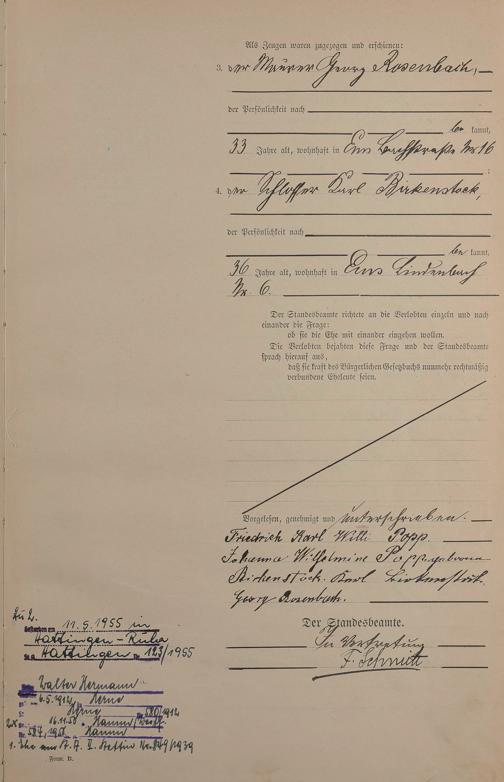 Als Zeugen waren zugezogen und erschienen:
3. der Maurer Georg Rosenbach,
der Persönlichkeit nach
be kannt,
33 Jahre alt, wohnhaft in Ems Bachstraße Nr 16
4. der Schlosser Karl Birkenstock,
der Persönlichkeit nach
be kannt,
36 Jahre alt, wohnhaft in Ems Lindenbach
Nr. 6.
Der Standesbeamte richtete an die Verlobten einzeln und nach
einander die Frage:
ob sie die Ehe mit einander eingehen wollen.
Die Verlobten bejahten diese Frage und der Standesbeamte
sprach hierauf aus,
daß sie kraft des Bürgerlichen Gesetzbuchs nunmehr rechtmäßig
verbundene Eheleute seien.
Vorgelesen, genehmigt und unterschrieben.
Friedrich Karl Willi Popp.
Johanna Wilhelmine Popp geborene
Birkenstock. Karl Birkenstock.
Georg Rosenbach.
Der Standesbeamte.
In Vertretung
F. Schmitt
Zu 2.
Gestorben am 11.9.1955 in
Hattingen-Ruhr
St.A. Hattingen Nr. 123/1955
Walter Hermann
6.5.1912 Herne
Herne Nr. 580/1912
16.11.58 Hamm/Westf.
587/1958 Hamm
1. Ehe am St. A. II. Stettin Nr. 849/1939
Form. B.